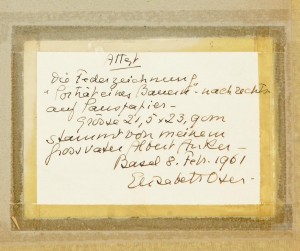 Attest
Die Federzeichnung
"Porträt eines Bauern" - nach rechts
auf Pauspapier -
Grösse 21,5 x 23,9 cm
stammt von meinem
Grossvater Albert Anker -
Basel 8. Febr. 1961
Elisabeth Oser -